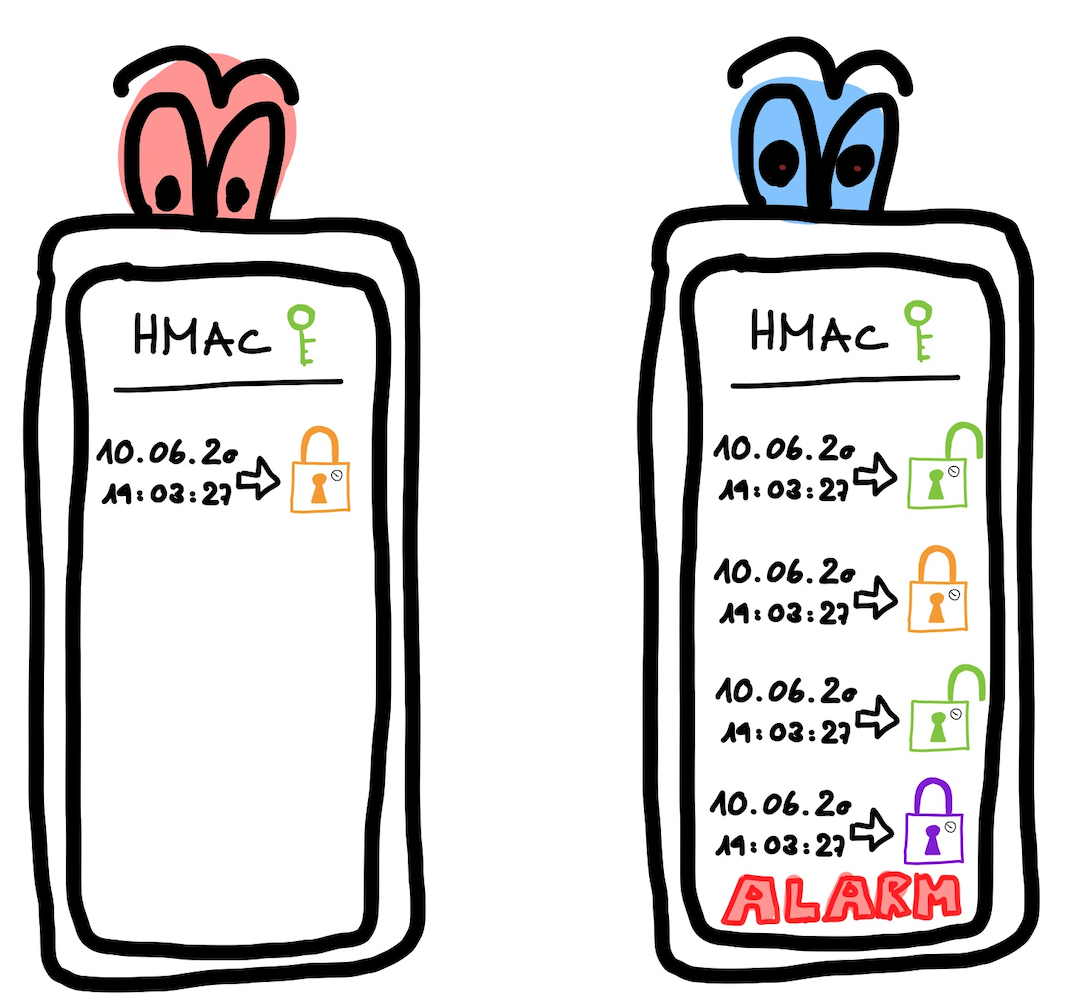 HMAC
10.06.20
19:03:27
HMAC
10.06.20
19:03:27
10.06.20
19:03:27
10.06.20
19:03:27
10.06.20
19:03:27
ALARM